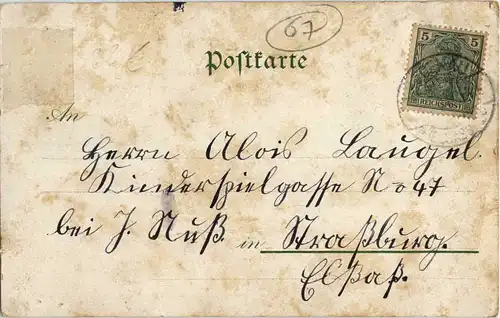 67
Postkarte
5 5
REICHSPOST
An
Herrn Alois Laugel
Kinderspielgasse No 47
bei J. Nuß. in Straßburg.
Elsaß.